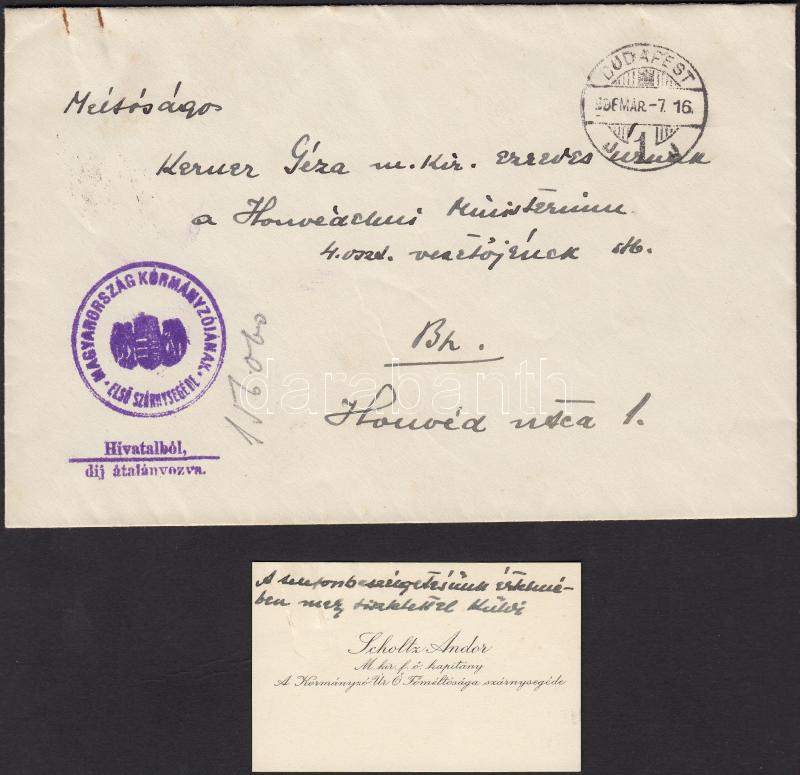 BUDAPEST
MÁR.-7. 16.
1
Méltóságos
Kerner Géza m. kir. ezredes urnak
a Honvédelmi Ministerium
4. oszt. vezetőjének stb.
Bp.
Honvéd utca 1.
MAGYARORSZÁG KORMÁNYZÓJÁNAK
ELSŐ SZÁRNYSEGÉDE
Hivatalból,
díj átalányozva.
darabanth
A telefonbeszélgetésünk értelmé-
ben tisztelettel küldi
Scholtz Andor
M. kir. f. ő. kapitány
A Kormányzó Úr Ő Főméltósága szárnysegéde